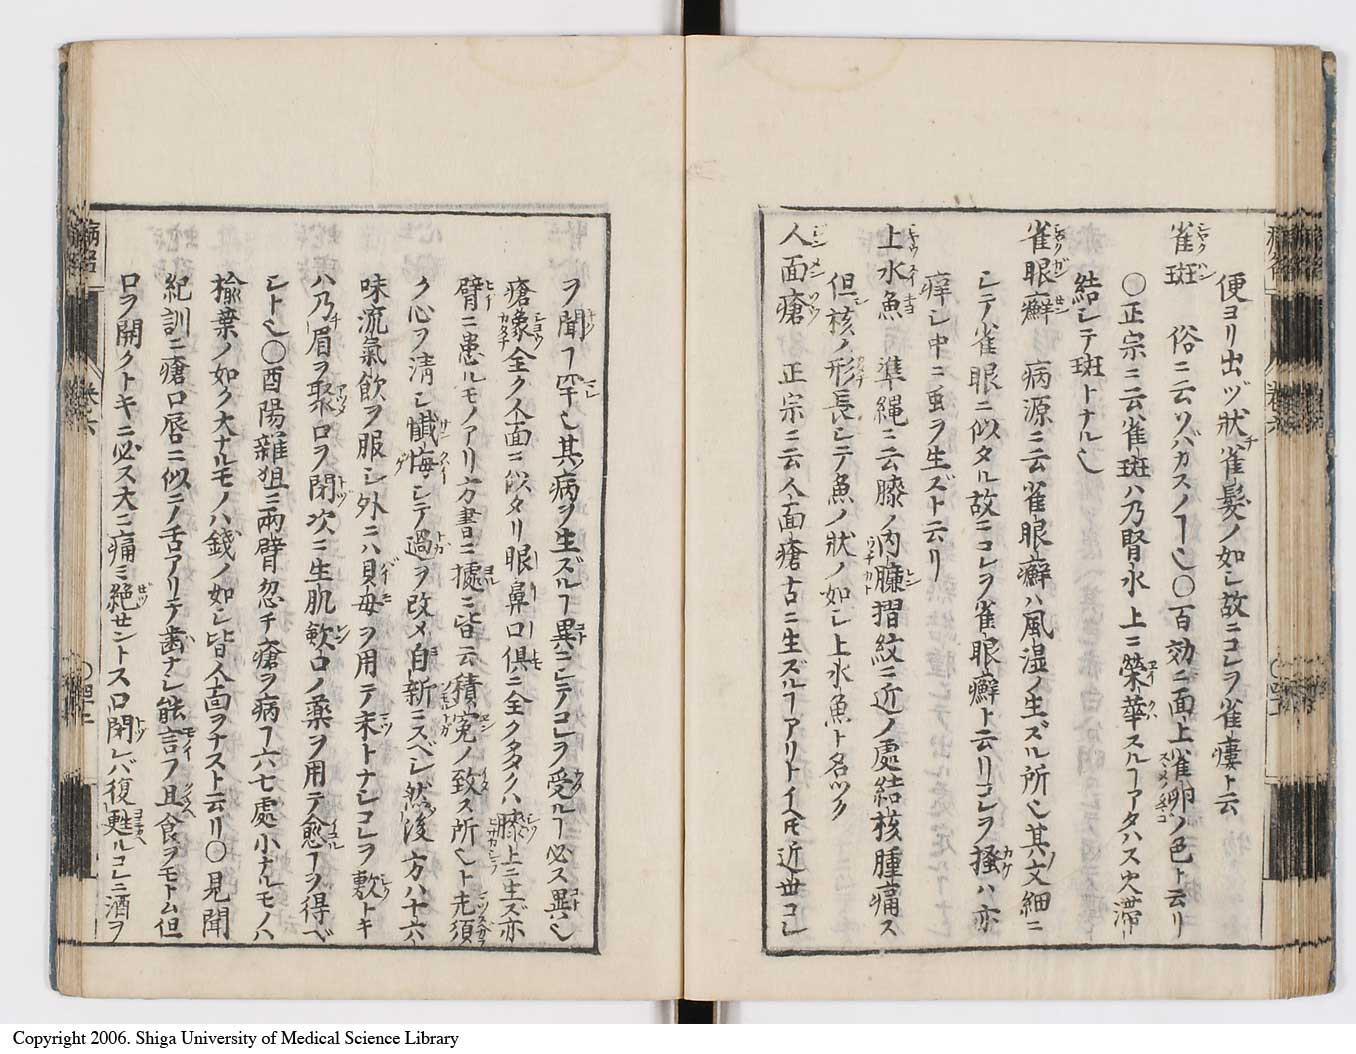 便ヨリ出ヅ狀雀髮ノ如シ故ニコレヲ雀瘻ト云
雀斑 俗ニ云ソバカスノヿ也〇百効ニ面上雀卵ノ色ト云リ
〇正宗ニ云雀斑ハ乃腎水上ニ榮華スルヿアタハス火滯
結シテ斑トナル也
雀眼癬 病源ニ云雀眼癬ハ風湿ノ生ズル所也其文細ニ
シテ雀眼ニ似タル故ニコレヲ雀眼癬ト云リコレヲ搔ハ亦
痒シ中ニ虫ヲ生ズト云リ
上水魚 準繩ニ云膝ノ内臁摺紋ニ近ノ處結核腫痛ス
但核ノ形長シテ魚ノ狀ノ如シ上水魚ト名ツク
人面瘡 正宗ニ云人面瘡古ニ生ズルヿアリトイヘ𪜈近世コレ
ヲ聞ヿ罕也其病ヲ生ズルヿ異ニシテコレヲ受ルヿ必ス異也
瘡象全ク人面ニ似タリ眼鼻口俱ニ全クタダハ膝上ニ生ズ亦
臂ニ患ルモノアリ方書ニ據ニ皆云積寃ノ致ス所也ト先須
ク心ヲ清シ懺悔シテ過ヲ改メ自新ニスベシ然後方ハ十六
味流氣飲ヲ服シ外ニハ貝母ヲ用テ末トナシコレヲ敷トキ
ハ乃眉ヲ聚口ヲ閉次ニ生肌歛口ノ藥ヲ用テ愈ヿヲ得ベ
シト也〇酉陽雜狙ニ兩臂忽チ瘡ヲ病ヿ六七處小ナルモノハ
楡莢ノ如ク大ナルモノハ錢ノ如シ皆人面ヲナスト云リ〇見聞
紀訓ニ瘡口唇口ニ似ニノ舌アリテ齒ナシ能言フ且食ヲモトム但
口ヲ開クトキニ必ス大ニ痛ミ絶セントス口閉レバ復甦ルコレニ酒ヲ
病名
卷六
〇四十二
Copyright 2006. Shiga University of Medical Science Library